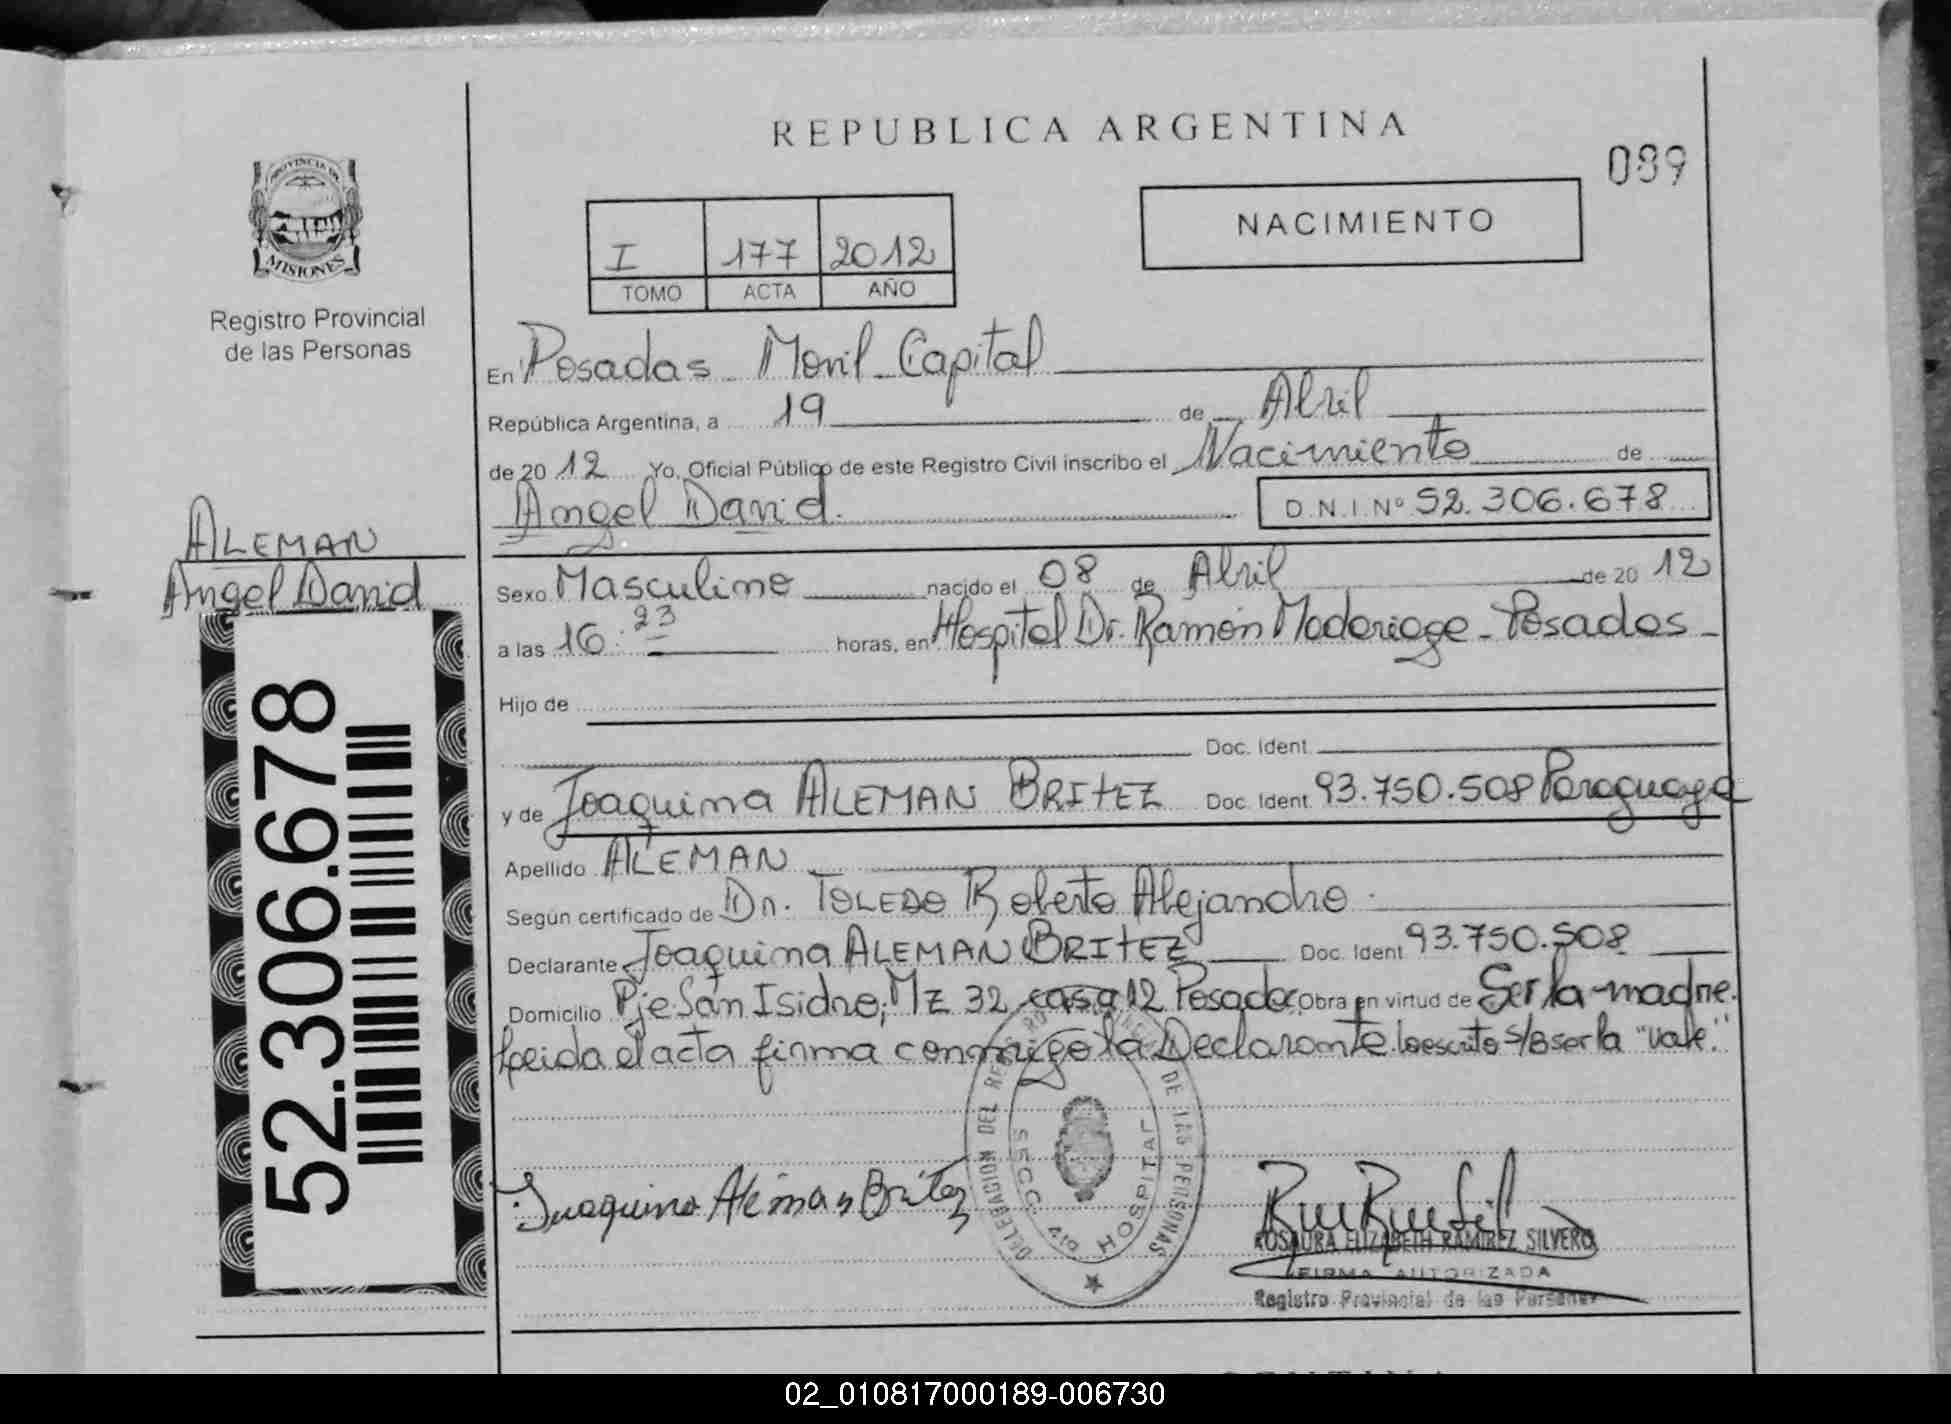 REPUBLICA ARGENTINA
089
PROVINCIA DE
MISIONES
Registro Provincial
de las Personas
I 177 2012
TOMO ACTA AÑO
NACIMIENTO
En Posadas Movil Capital
República Argentina, a 19 de Abril
de 20 12 Yo, Oficial Público de este Registro Civil inscribo el Nacimiento de
Angel David. D.N.I. Nº 52.306.678
ALEMAN
Angel David
52.306.678
Sexo Masculino nacido el 08 de Abril de 20 12
a las 16:23 horas, en Hospital Dr. Ramón Madariaga - Posadas -
Hijo de
Doc. Ident.
y de Joaquina ALEMAN BRITEZ Doc. Ident. 93.750.508 Paraguaya
Apellido ALEMAN
Según certificado de Dr. TOLEDO Roberto Alejandro.
Declarante Joaquina ALEMAN BRITEZ Doc. Ident 93.750.508
Domicilio Pje San Isidro; Mz 32 casa 12 Posadas Obra en virtud de Ser la madre.
leida el acta firma conmigo la Declarante. lo escrito s/B ser la "vale".
DELEGACION DEL REGISTRO PROVINCIAL DE LAS PERSONAS
SECC. 4ta HOSPITAL
Juaquina Aleman Britez
ROSAURA ELIZABETH RAMIREZ SILVERO
FIRMA AUTORIZADA
Registro Provincial de las Personas
02_010817000189-006730